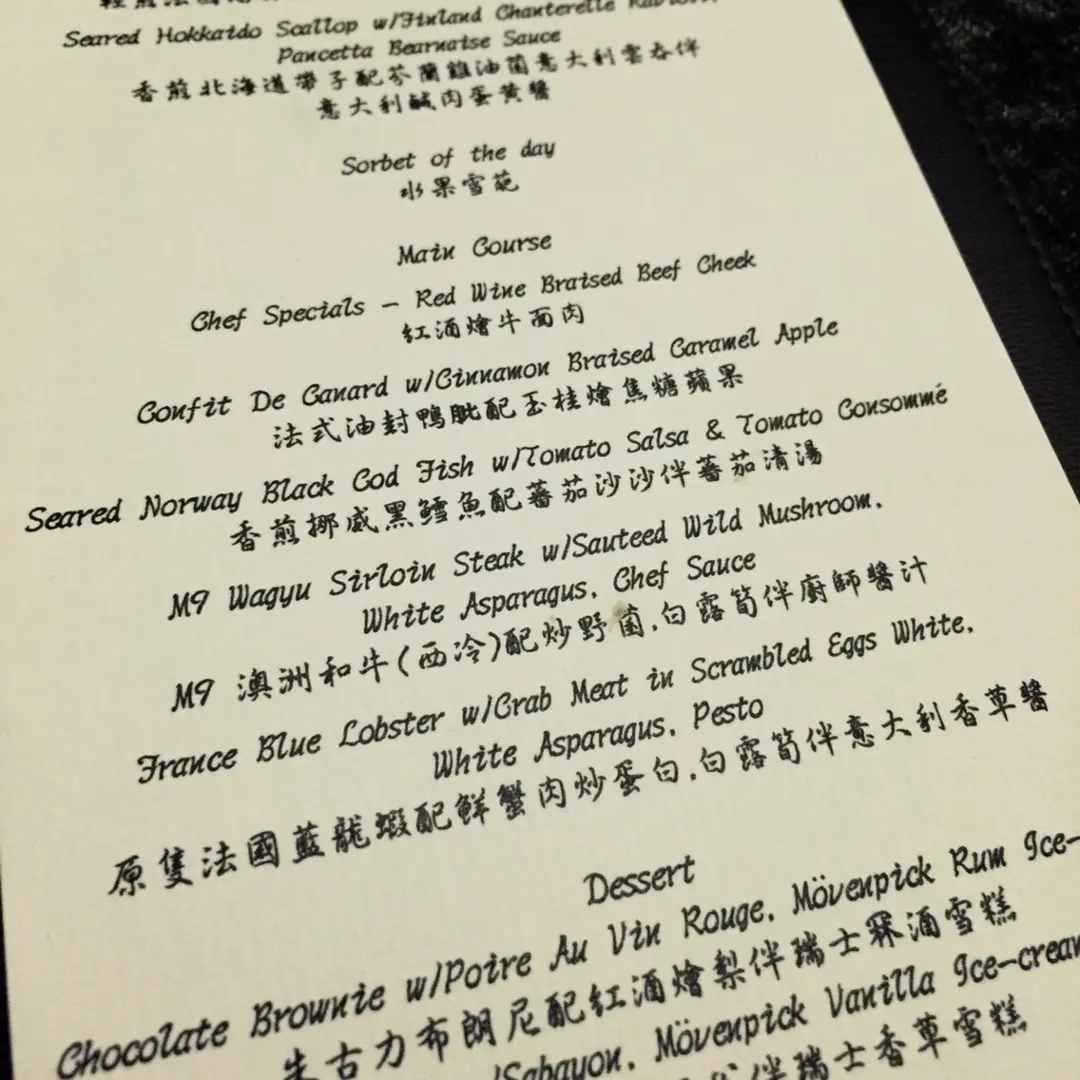 Seared Hokkaido Scallop w/Finland Chanterelle Ravioli,
Pancetta Bearnaise Sauce
香煎北海道帶子配芬蘭雞油菌意大利雲吞伴
意大利鹹肉蛋黃醬
Sorbet of the day
水果雪葩
Main Course
Chef Specials - Red Wine Braised Beef Cheek
紅酒燴牛面肉
Confit De Canard w/Cinnamon Braised Caramel Apple
法式油封鴨肶配玉桂燴焦糖蘋果
Seared Norway Black Cod Fish w/Tomato Salsa & Tomato Consommé
香煎挪威黑鱈魚配蕃茄沙沙伴蕃茄清湯
M9 Wagyu Sirloin Steak w/Sauteed Wild Mushroom,
White Asparagus, Chef Sauce
M9 澳洲和牛(西冷)配炒野菌,白露筍伴廚師醬汁
France Blue Lobster w/Crab Meat in Scrambled Eggs White,
White Asparagus, Pesto
原隻法國藍龍蝦配鮮蟹肉炒蛋白,白露筍伴意大利香草醬
Dessert
Chocolate Brownie w/Poire Au Vin Rouge, Mövenpick Rum Ice-
朱古力布朗尼配紅酒燴梨伴瑞士冧酒雪糕
/Sabayon, Mövenpick Vanilla Ice-cream
伴瑞士香草雪糕